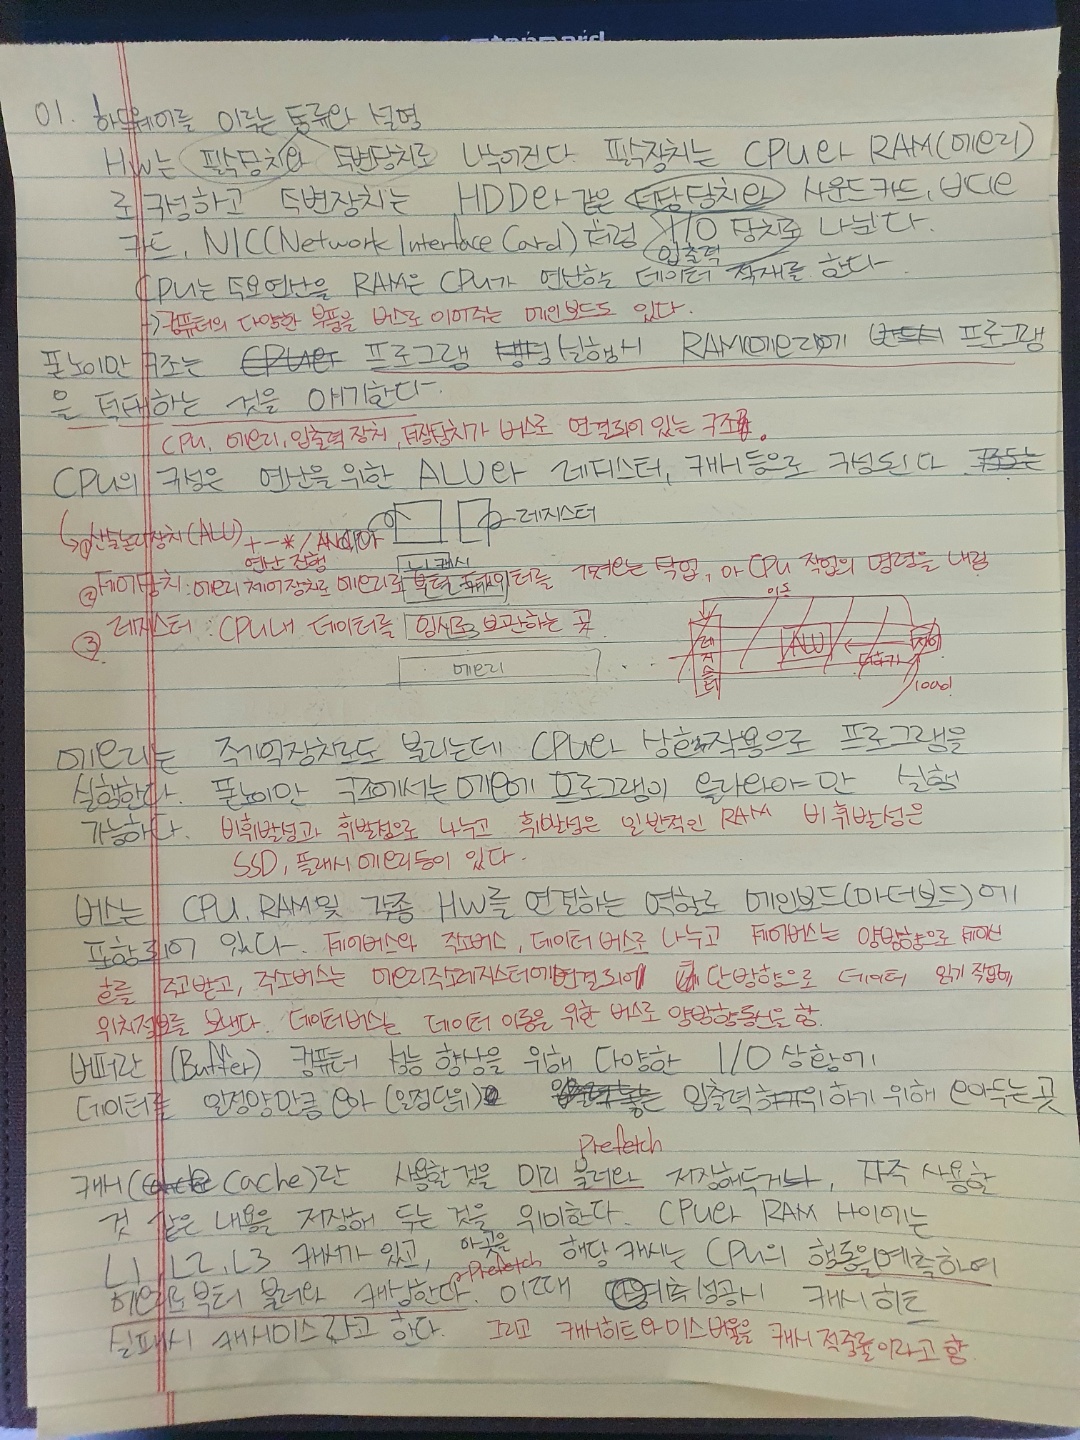 01. 하드웨어를 이루는 종류와 설명
HW는 필수장치와 주변장치로 나누어진다. 필수장치는 CPU와 RAM(메모리)
로 구성하고 주변장치는 HDD와 같은 저장장치와 사운드카드, 비디오
카드, NIC(Network Interface Card)처럼 I/O 장치로 나뉜다.
입출력
CPU는 주요연산을 RAM은 CPU가 연산하는 데이터 적재를 한다.
→ 컴퓨터의 다양한 부품을 버스로 이어주는 메인보드도 있다.
폰노이만 구조는 프로그램 실행시 RAM(메모리)에 프로그램
을 적재하는 것을 얘기한다.
CPU, 메모리, 입출력 장치, 저장장치가 버스로 연결되어 있는 구조.
CPU의 구성은 연산을 위한 ALU와 레지스터, 캐시 등으로 구성된다
레지스터
① 산술논리장치(ALU) + - * / AND
연산 진행
캐시
② 제어장치: 메모리 제어장치로 메모리로부터 데이터를 가져오는 작업, 아 CPU 작업의 명령을 내림
이동
③ 레지스터: CPU내 데이터를 임시로 보관하는 곳
레지스터 ALU 더하기 제어
메모리 ...
load
메모리는 주기억장치로도 불리는데 CPU와 상호작용으로 프로그램을
실행한다. 폰노이만 구조에서는 메모리에 프로그램이 올라와야만 실행
가능하다. 비휘발성과 휘발성으로 나누고 휘발성은 일반적인 RAM 비휘발성은
SSD, 플래시 메모리등이 있다.
버스는 CPU, RAM 및 각종 HW를 연결하는 역할로 메인보드(마더보드)에
포함되어 있다. 제어버스와 주소버스, 데이터 버스로 나누고 제어버스는 양방향으로 제어신
호를 주고받고, 주소버스는 메모리주소레지스터에 연결되어 단방향으로 데이터 읽기 작업에
위치정보를 보낸다. 데이터버스는 데이터 이동을 위한 버스로 양방향통신을 함.
버퍼란 (Buffer) 컴퓨터 성능 향상을 위해 다양한 I/O 상황에
데이터를 일정양만큼 모아 (일정단위) 입출력 하기 위해 모아두는 곳
Prefetch
캐시(Cache)란 사용한 것을 미리 불러와 저장해두거나, 자주 사용할
것 같은 내용을 저장해 두는 것을 의미한다. CPU와 RAM 사이에는
L1, L2, L3 캐시가 있고, 해당 캐시는 CPU의 행동을 예측하여
Prefetch
메모리로부터 불러와 저장한다. 이때 예측 성공시 캐시히트
실패시 캐시미스 라고 한다. 그리고 캐시히트와 미스 비율을 캐시 적중률이라고 함.